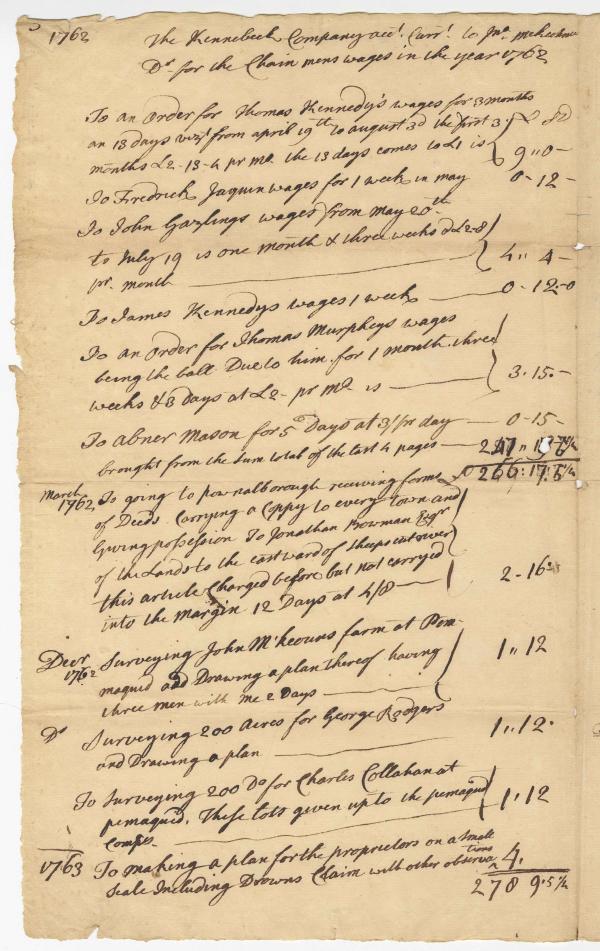 1762 The Kennebeck Company acct. Currt. to Jno. McKechnie
Dr for the Chain mens wages in the year 1762
To an order for Thomas Kennedy's wages for 3 months
an 13 days vizt from april 19th to august 3d the first 3
months £2-13-4 pr mo. the 13 days comes to £1 is 9"0-
To Fredrick Jaquin wages for 1 week in may 0-12-
To John Gazlings wages from May 20th
to July 19 is one month & three weeks @ £2-8
pr. month 4" 4-
To James Kennedys wages 1 week 0-12-0
To an order for Thomas Murpheys wages
being the ball Due to him for 1 month three
weeks & 3 days at £2- pr mo is 3.15.-
To Abner Mason for 5 Days at 3/ pr day 0-15-
brought from the sum total of the last 4 pages
£266:17:5½
March 1762 To going to pownalborough receiving forms
of Deeds Carrying a Coppy to every Town and
Giving possession To Jonathan Bowman Esqr
of the Lands to the eastward of Sheepscut river
this article Charged before but not carryed
into the Margin 12 Days at 4/8 2-16
Decr 1762 Surveying John McKeouns farm at Pem-
maquid and Drawing a plan thereof having
three men with me 2 Days 1"12
Do Surveying 200 Acres for George Rodgers
and Drawing a plan 1"12.
To Surveying 200 Do for Charles Collahan at
pemaquid. These lots given up to the pemaquid
Compy. 1"12
1763 To making a plan for the proprietors on a Small
Scale Including Drowns Claim with other observations 4.
278 9.5½